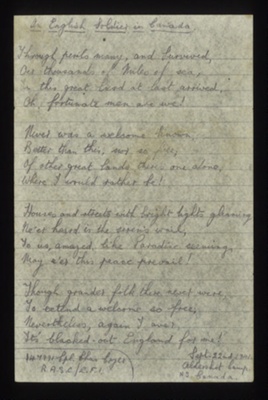 An English Soldier in Canada
Through perils many, and survived,
O'er thousands of miles of sea,
In this great land at last arrived,
Oh, fortunate men are we!
Never was a welcome known,
Better than this, nor so free,
Of other great lands there's one alone,
Where I would rather be!
Houses and streets with bright lights gleaming
Ne'er heard the siren's wail,
To us, amazed, like Paradise seeming,
May e'er this peace prevail!
Though grander folk there never were,
To extend a welcome so free,
Nevertheless, again I aver,
It's blacked-out England for me!
Sept. 22nd
Camp
Canada